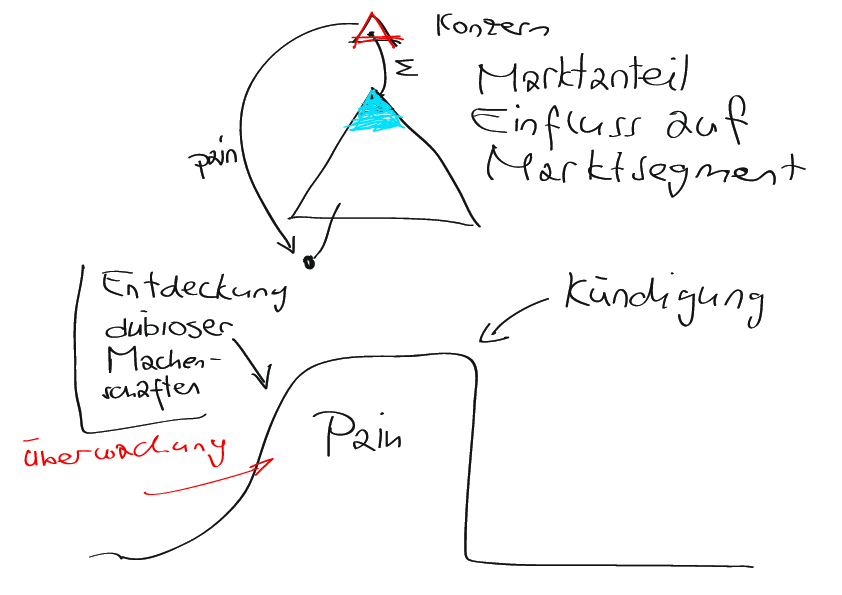 Konzern
Σ
Marktanteil
Einfluss auf
Marktsegment
pain
Entdeckung
dubioser
Machen-
schaften
Kündigung
Pain
Überwachung